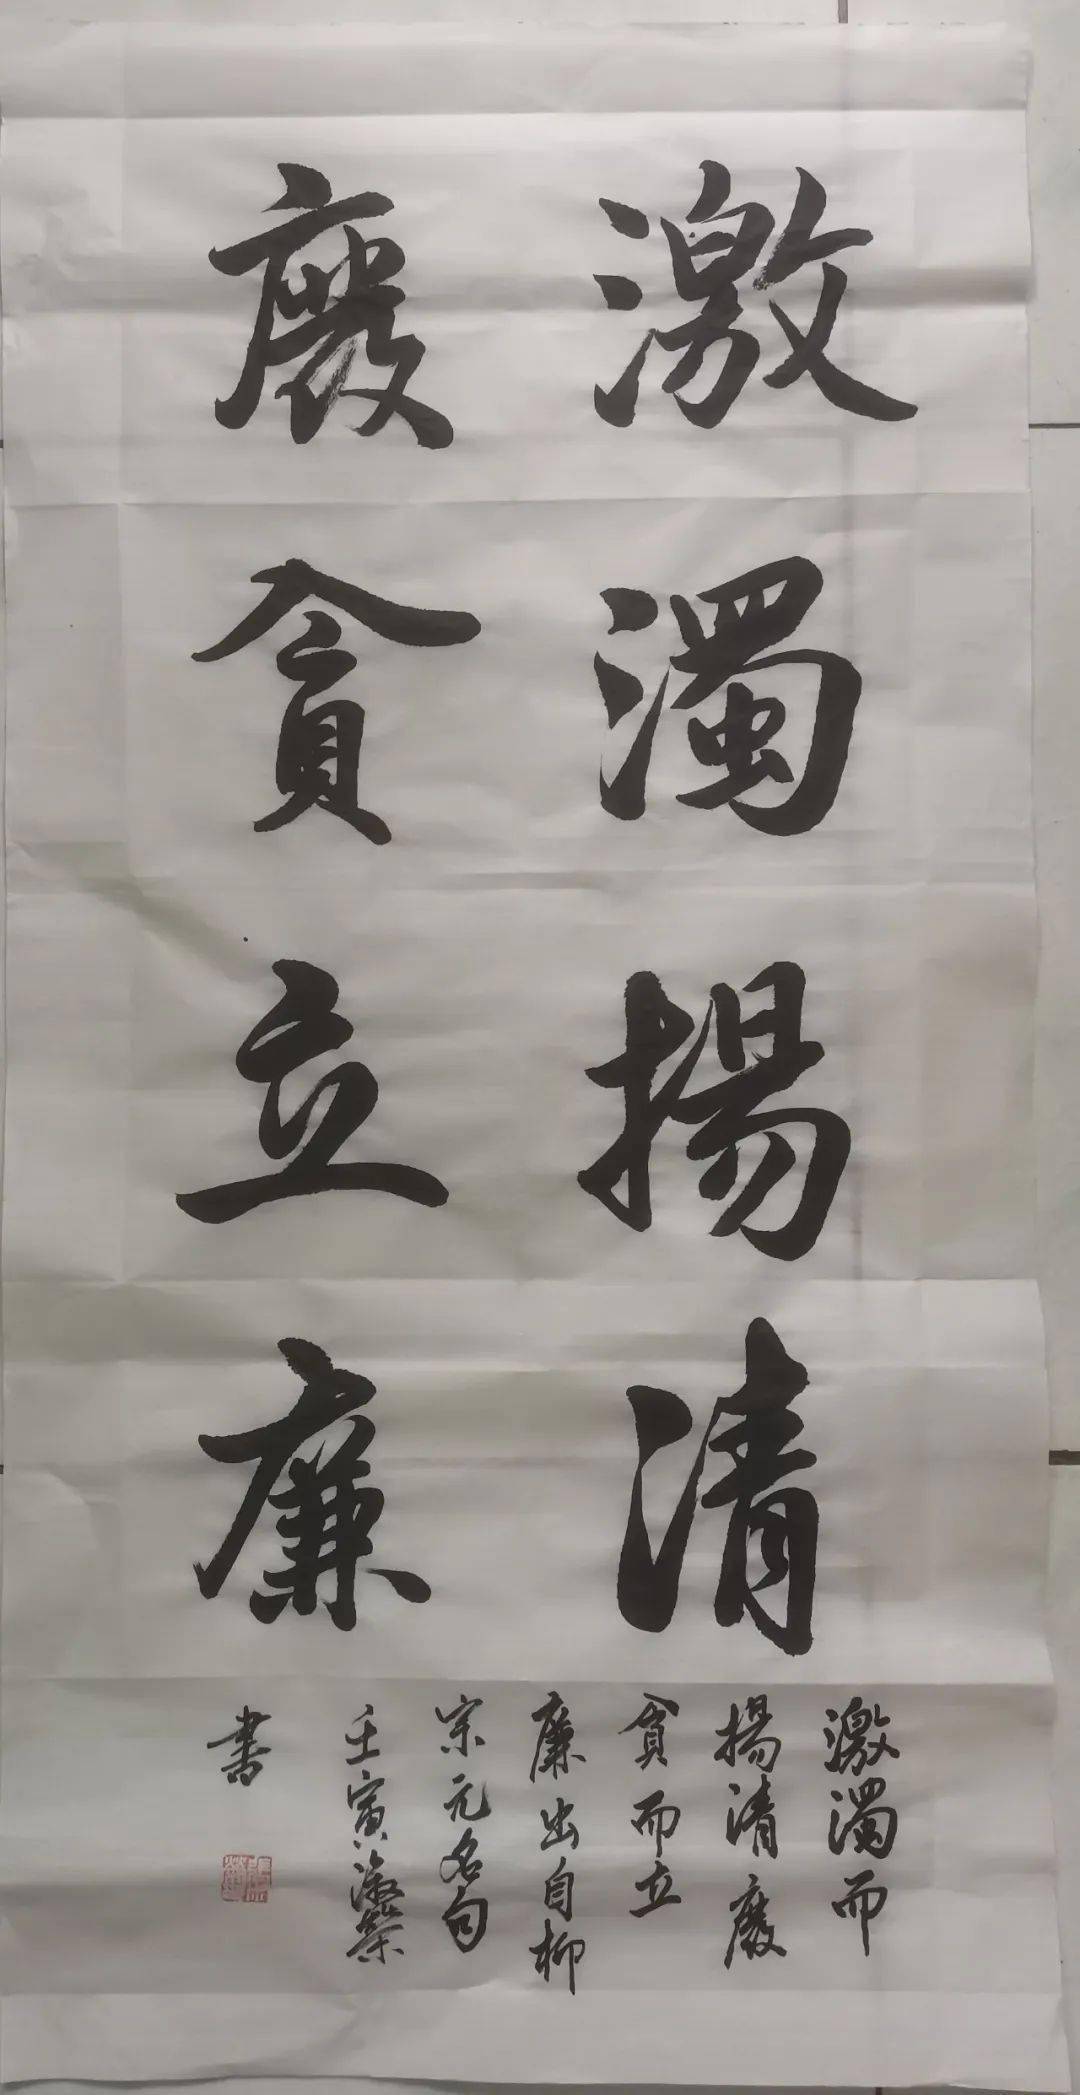 激濁揚清
廢貪立廉
激濁而
揚清廢
貪而立
廉出自柳
宗元名句
壬寅
書